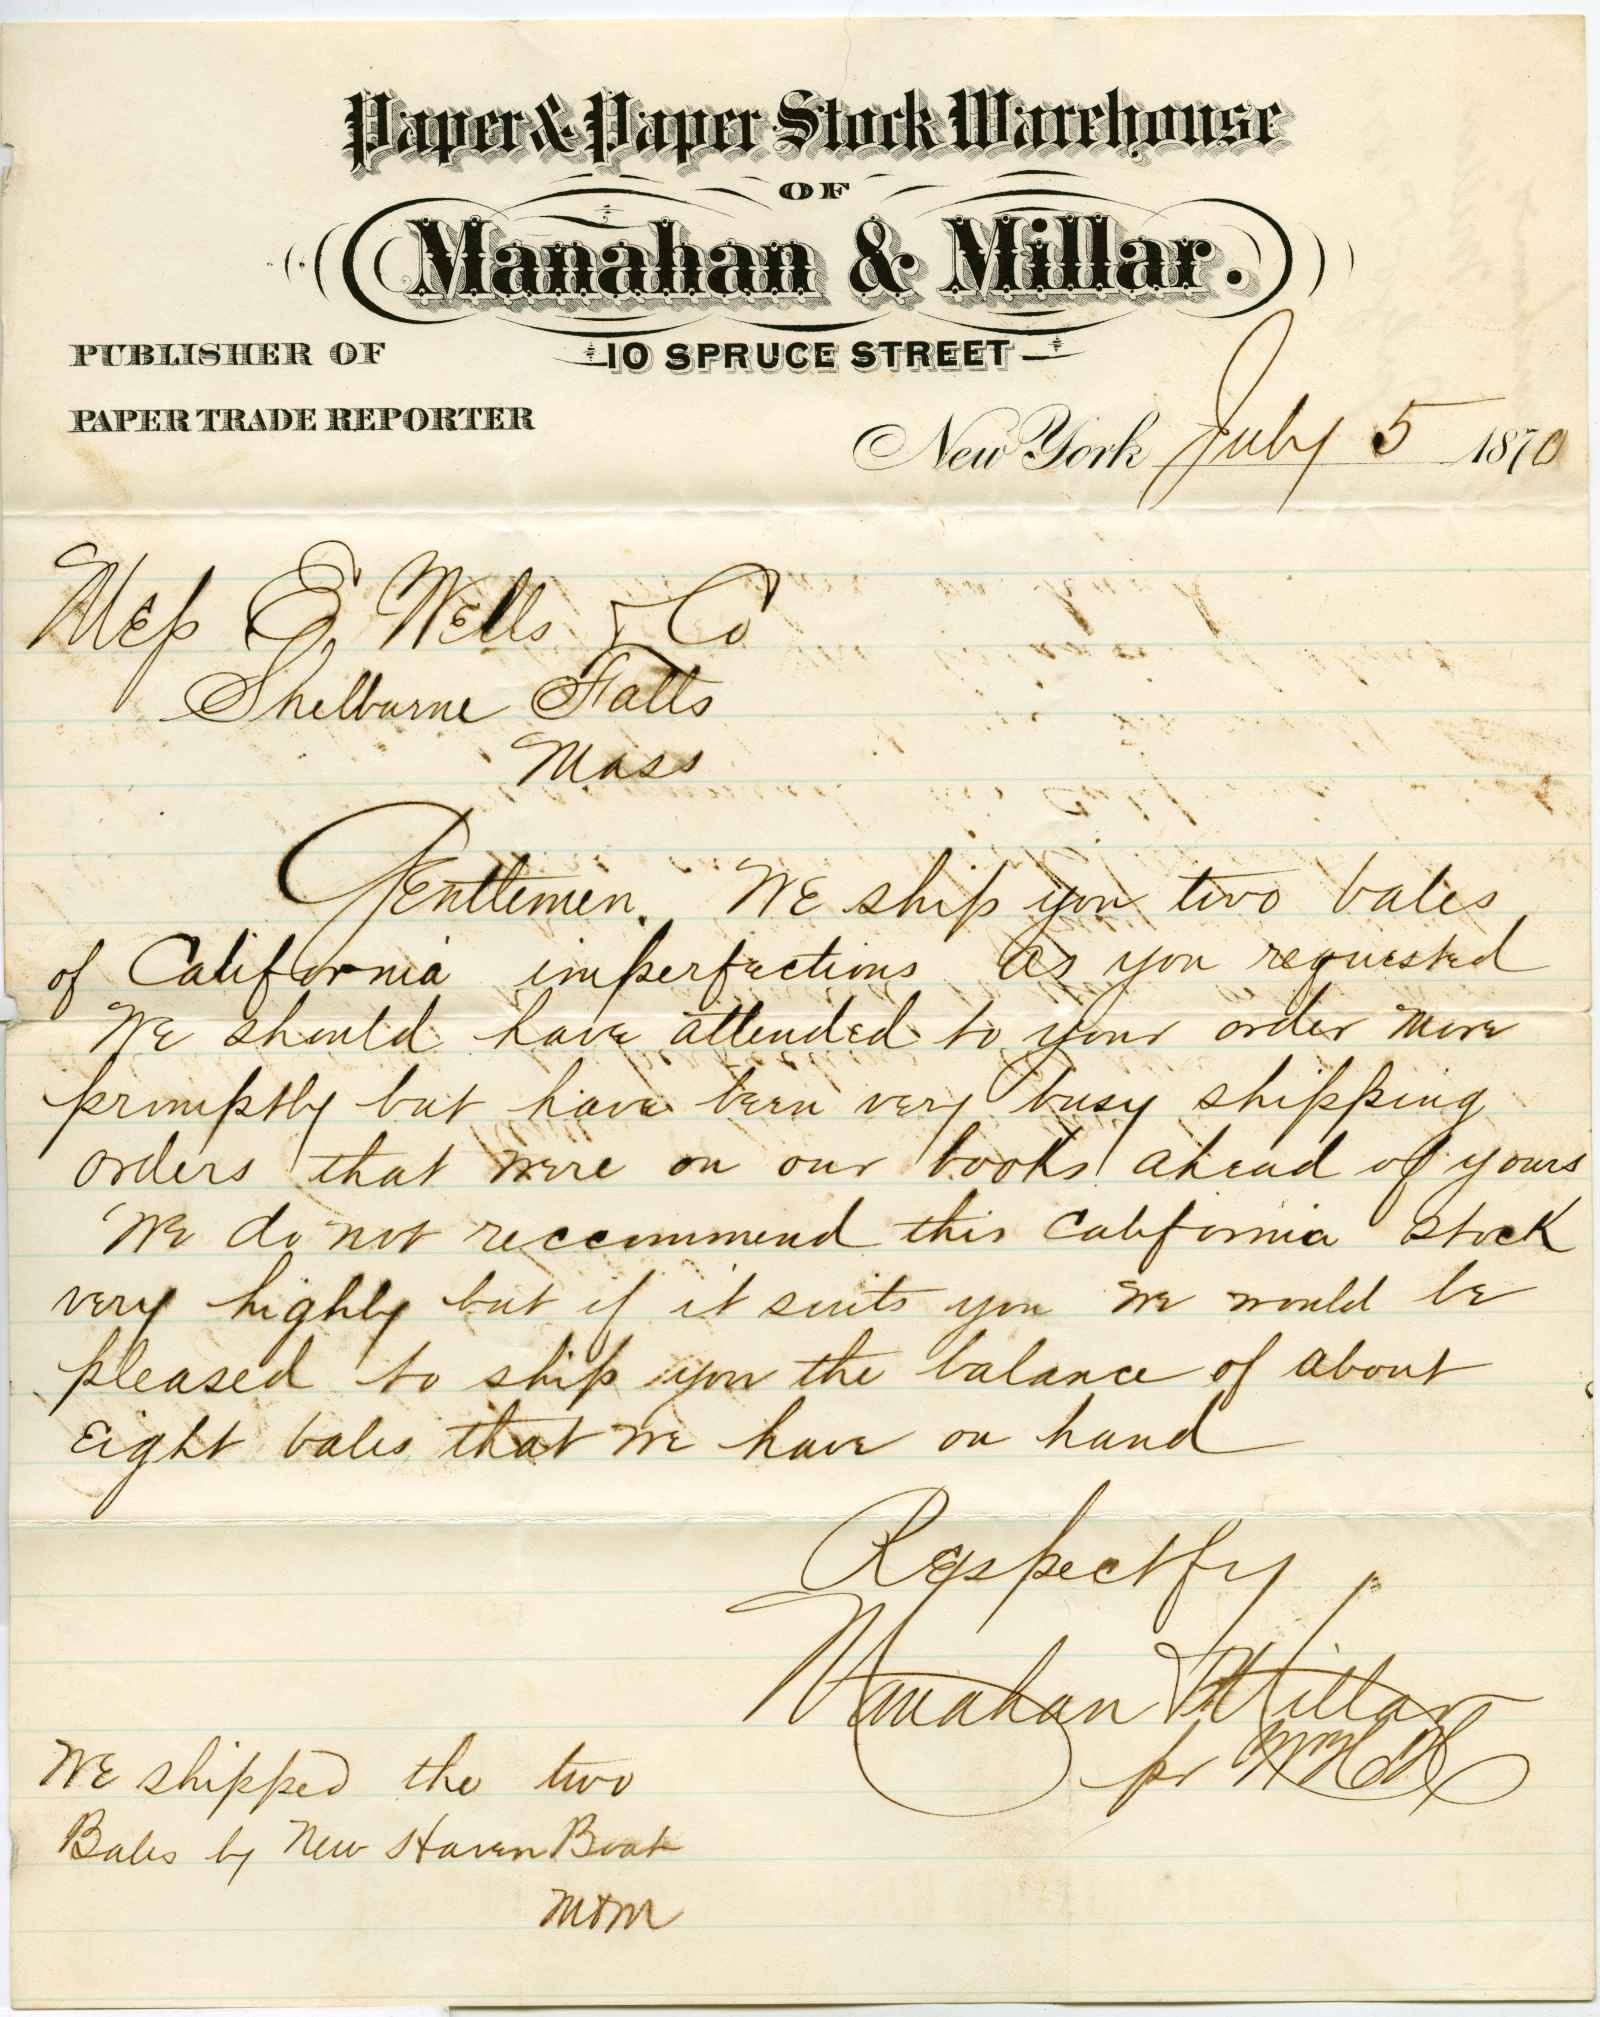 Paper & Paper Stock Warehouse
OF
Manahan & Millar.
PUBLISHER OF
10 SPRUCE STREET
PAPER TRADE REPORTER
New York July 5 1870
Mess E Wells & Co
Shelburne Falls
Mass
Gentlemen. We ship you two bales
of California imperfections as you requested
We should have attended to your order more
promptly but have been very busy shipping
orders that were on our books ahead of yours
We do not reccommend this California stock
very highly but if it suits you we would be
pleased to ship you the balance of about
Eight bales that we have on hand
Respectfy
Manahan & Millar
pr
We shipped the two
Bales by New Haven Boat
M&M